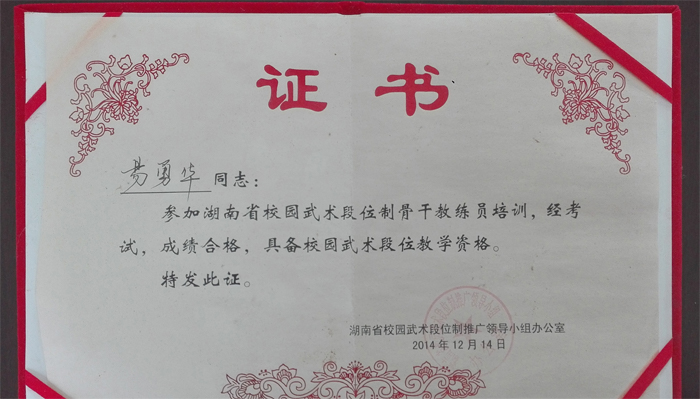 证书
易勇华同志：
参加湖南省校园武术段位制骨干教练员培训，经考
试，成绩合格，具备校园武术段位教学资格。
特发此证。
湖南省校园武术段位制推广领导小组办公室
2014年12月14日